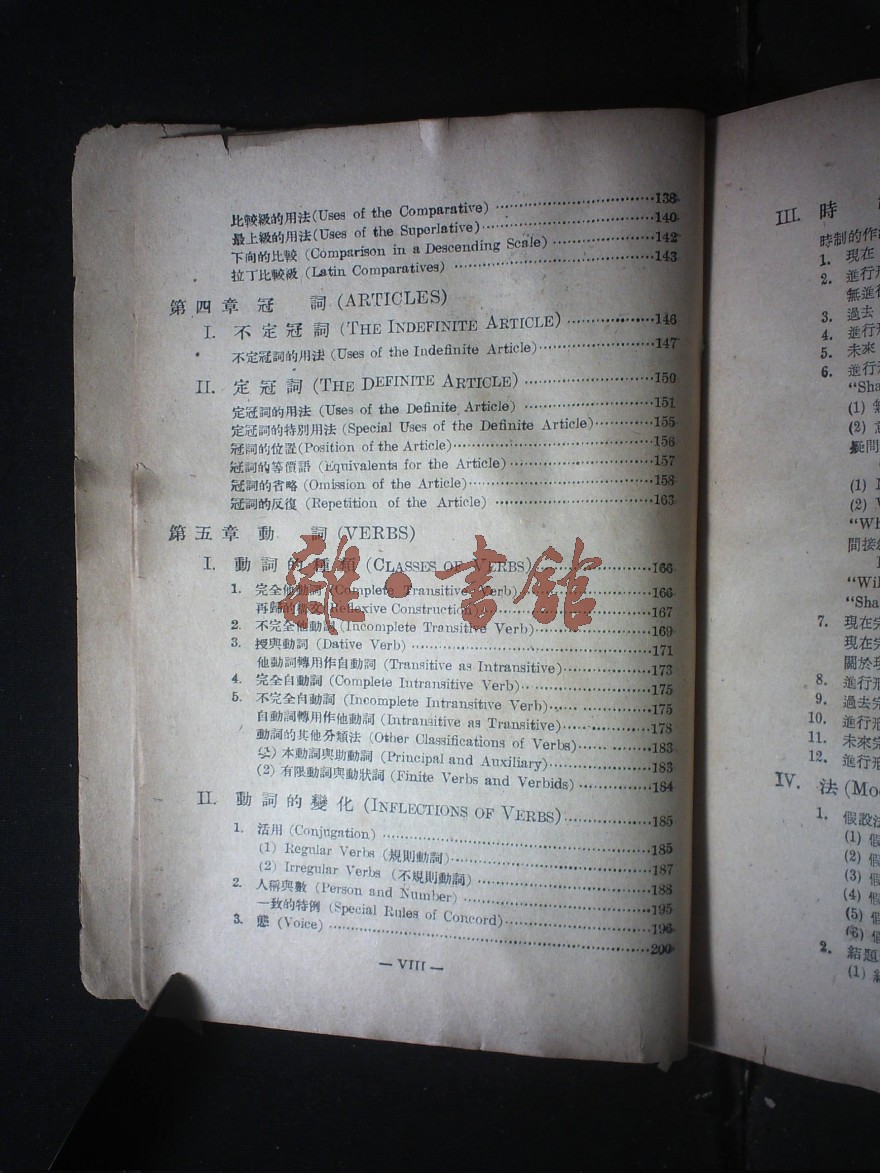 比較級的用法(Uses of the Comparative) 138
最上級的用法(Uses of the Superlative) 140
下向的比較 (Comparison in a Descending Scale) 142
拉丁比較級 (Latin Comparatives) 143
第四章 冠 詞 (ARTICLES)
I. 不定冠詞 (THE INDEFINITE ARTICLE) 146
不定冠詞的用法 (Uses of the Indefinite Article) 147
II. 定冠詞 (THE DEFINITE ARTICLE) 150
定冠詞的用法 (Uses of the Definite Article) 151
定冠詞的特別用法 (Special Uses of the Definite Article) 155
冠詞的位置(Position of the Article) 156
冠詞的等價語 (Equivalents for the Article) 157
冠詞的省略 (Omission of the Article) 158
冠詞的反復 (Repetition of the Article) 163
第五章 動 詞 (VERBS)
I. 動詞的種類 (CLASSES OF VERBS) 166
1. 完全他動詞 (Complete Transitive Verb) 166
再歸的構文 (Reflexive Construction) 167
2. 不完全他動詞 (Incomplete Transitive Verb) 169
3. 授與動詞 (Dative Verb) 171
他動詞轉用作自動詞 (Transitive as Intransitive) 173
4. 完全自動詞 (Complete Intransitive Verb) 175
5. 不完全自動詞 (Incomplete Intransitive Verb) 175
自動詞轉用作他動詞 (Intransitive as Transitive) 178
動詞的其他分類法 (Other Classifications of Verbs) 183
本動詞與助動詞 (Principal and Auxiliary) 183
(2) 有限動詞與動狀詞 (Finite Verbs and Verbids) 184
II. 動詞的變化 (INFLECTIONS OF VERBS) 185
1. 活用 (Conjugation) 185
(1) Regular Verbs (規則動詞) 187
(2) Irregular Verbs (不規則動詞) 188
2. 人稱與數 (Person and Number) 195
一致的特例 (Special Rules of Concord) 196
3. 態 (Voice) 200
— VIII —
雜·書館
III. 時
時制的作
1. 現在
2. 進行
無進行
3. 過去
4. 進行
5. 未來
6. 進行
"Sha
(1)
(2)
疑問
(1)
(2)
"Wh
間接
"Wil
"Sha
7. 現在完
現在完
關於現
8. 進行
9. 過去完
10. 進行
11. 未來完
12. 進行
IV. 法 (Mo
1. 假設法
(1) 假
(2) 假
(3) 假
(4) 假
(5) 假
(6) 假
2. 結題
(1)